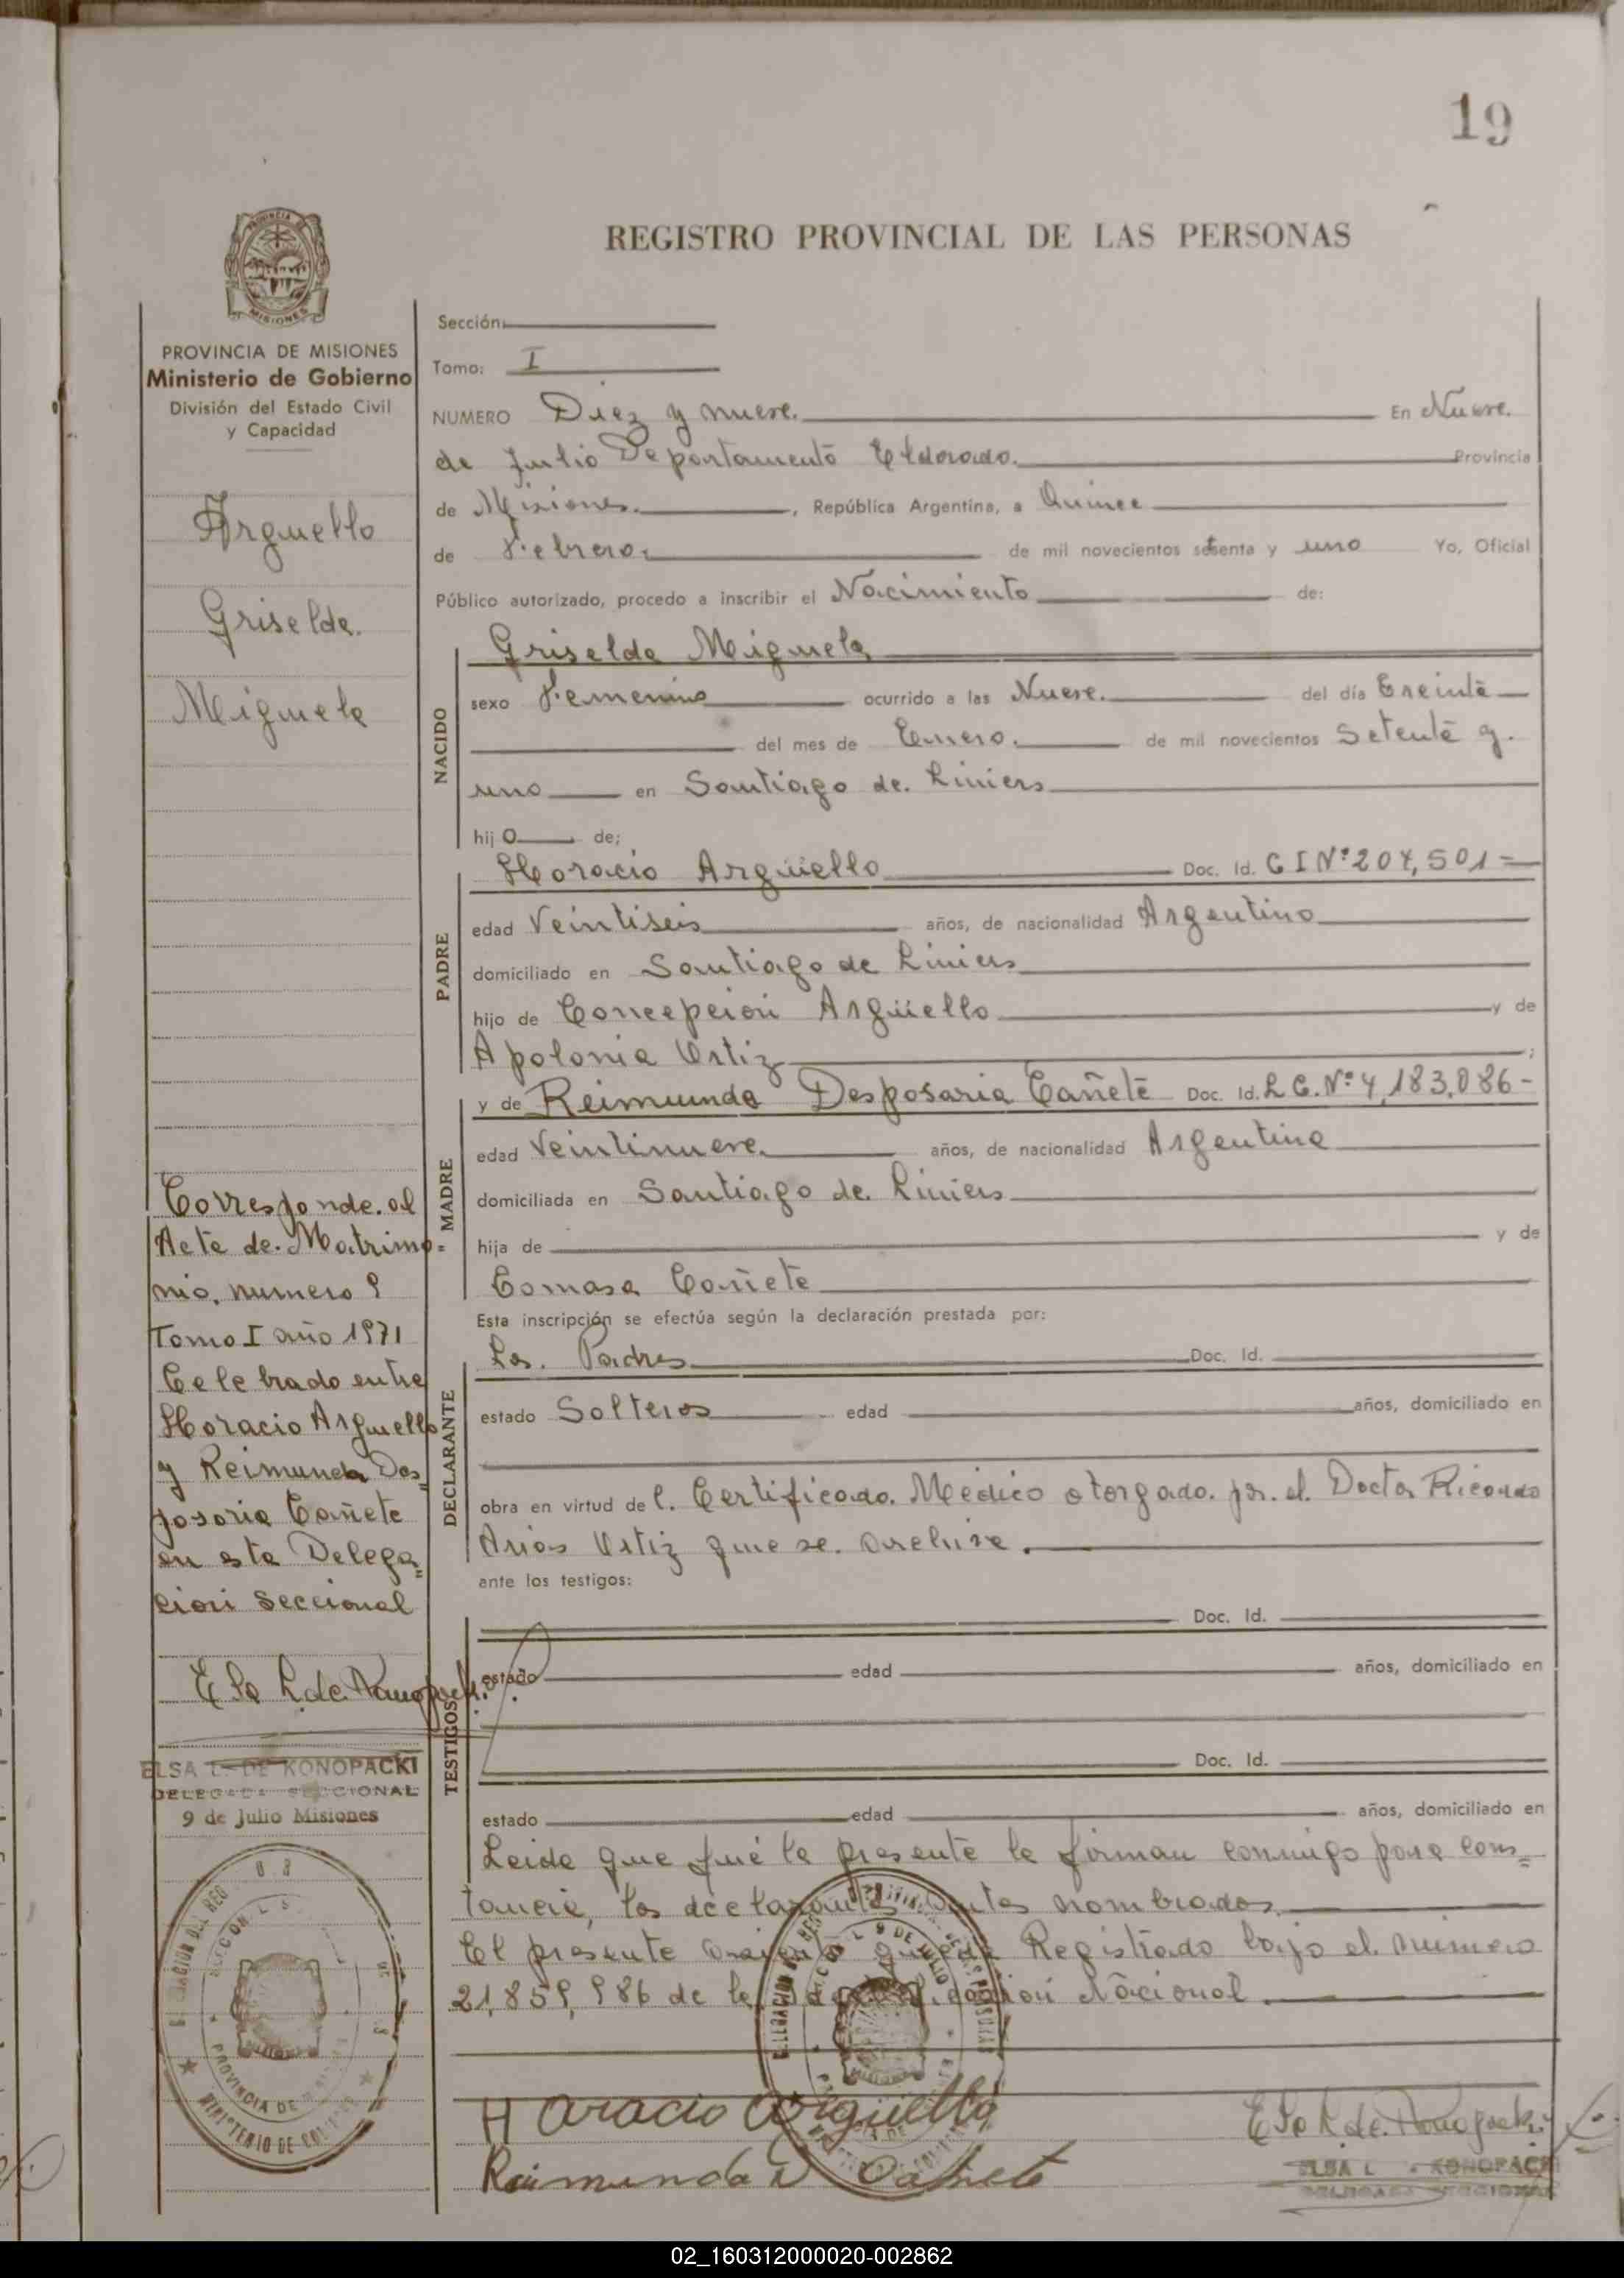 19
REGISTRO PROVINCIAL DE LAS PERSONAS
PROVINCIA DE MISIONES
Ministerio de Gobierno
División del Estado Civil
y Capacidad
Arguello
Griselda.
Miguela
Corresponde. al
Acta de. Matrimo=
nio. numero 9
Tomo I año 1971
Celebrado entre
Horacio Arguello
y Reimunda Des=
posoria Cañete
en esta Delega=
cion Seccional
Elsa L de. Konopacki
ELSA L. DE KONOPACKI
DELEGADA SECCIONAL
9 de Julio Misiones
Sección:
Tomo: I
NUMERO Diez y nueve. En Nueve.
de Julio Departamento Eldorado. Provincia
de Misiones. , República Argentina, a Quince
de Febrero. de mil novecientos setenta y uno Yo, Oficial
Público autorizado, procedo a inscribir el Nacimiento de:
NACIDO
Griselda Miguela
sexo Femenino ocurrido a las Nueve. del día Treinta
del mes de Enero. de mil novecientos Setenta y.
uno en Santiago de. Liniers
hij O de;
PADRE
Horacio Argüello Doc. Id. C I Nº 207,501=
edad Veintiseis años, de nacionalidad Argentino
domiciliado en Santiago de Liniers
hijo de Concepcion Argüello y de
Apolonia Ortiz ;
MADRE
y de Reimunda Desposaria Cañete Doc. Id. L C. Nº 4,183,086-
edad Veintinueve. años, de nacionalidad Argentina
domiciliada en Santiago de. Liniers
hija de y de
Tomasa Cañete
Esta inscripción se efectúa según la declaración prestada por:
DECLARANTE
Los. Padres Doc. Id.
estado Solteros edad años, domiciliado en
obra en virtud de l. Certificado. Médico otorgado. por. el. Doctor Ricardo
Arias Ortiz que se. archiva.
ante los testigos:
TESTIGOS
Doc. Id.
estado edad años, domiciliado en
Doc. Id.
estado edad años, domiciliado en
Leida que fué la presente la firman conmigo para cons=
tancia, los declarantes antes nombrados.
El presente queda Registrado bajo el. numero
21,859,986 de la Nacional.
Horacio Argüello
Reimunda D Cañete
Elsa L de. Konopacki
ELSA L KONOPACKI
DELEGADA SECCIONAL
PROVINCIA DE
MINISTERIO DE GOBIERNO
02_160312000020-002862